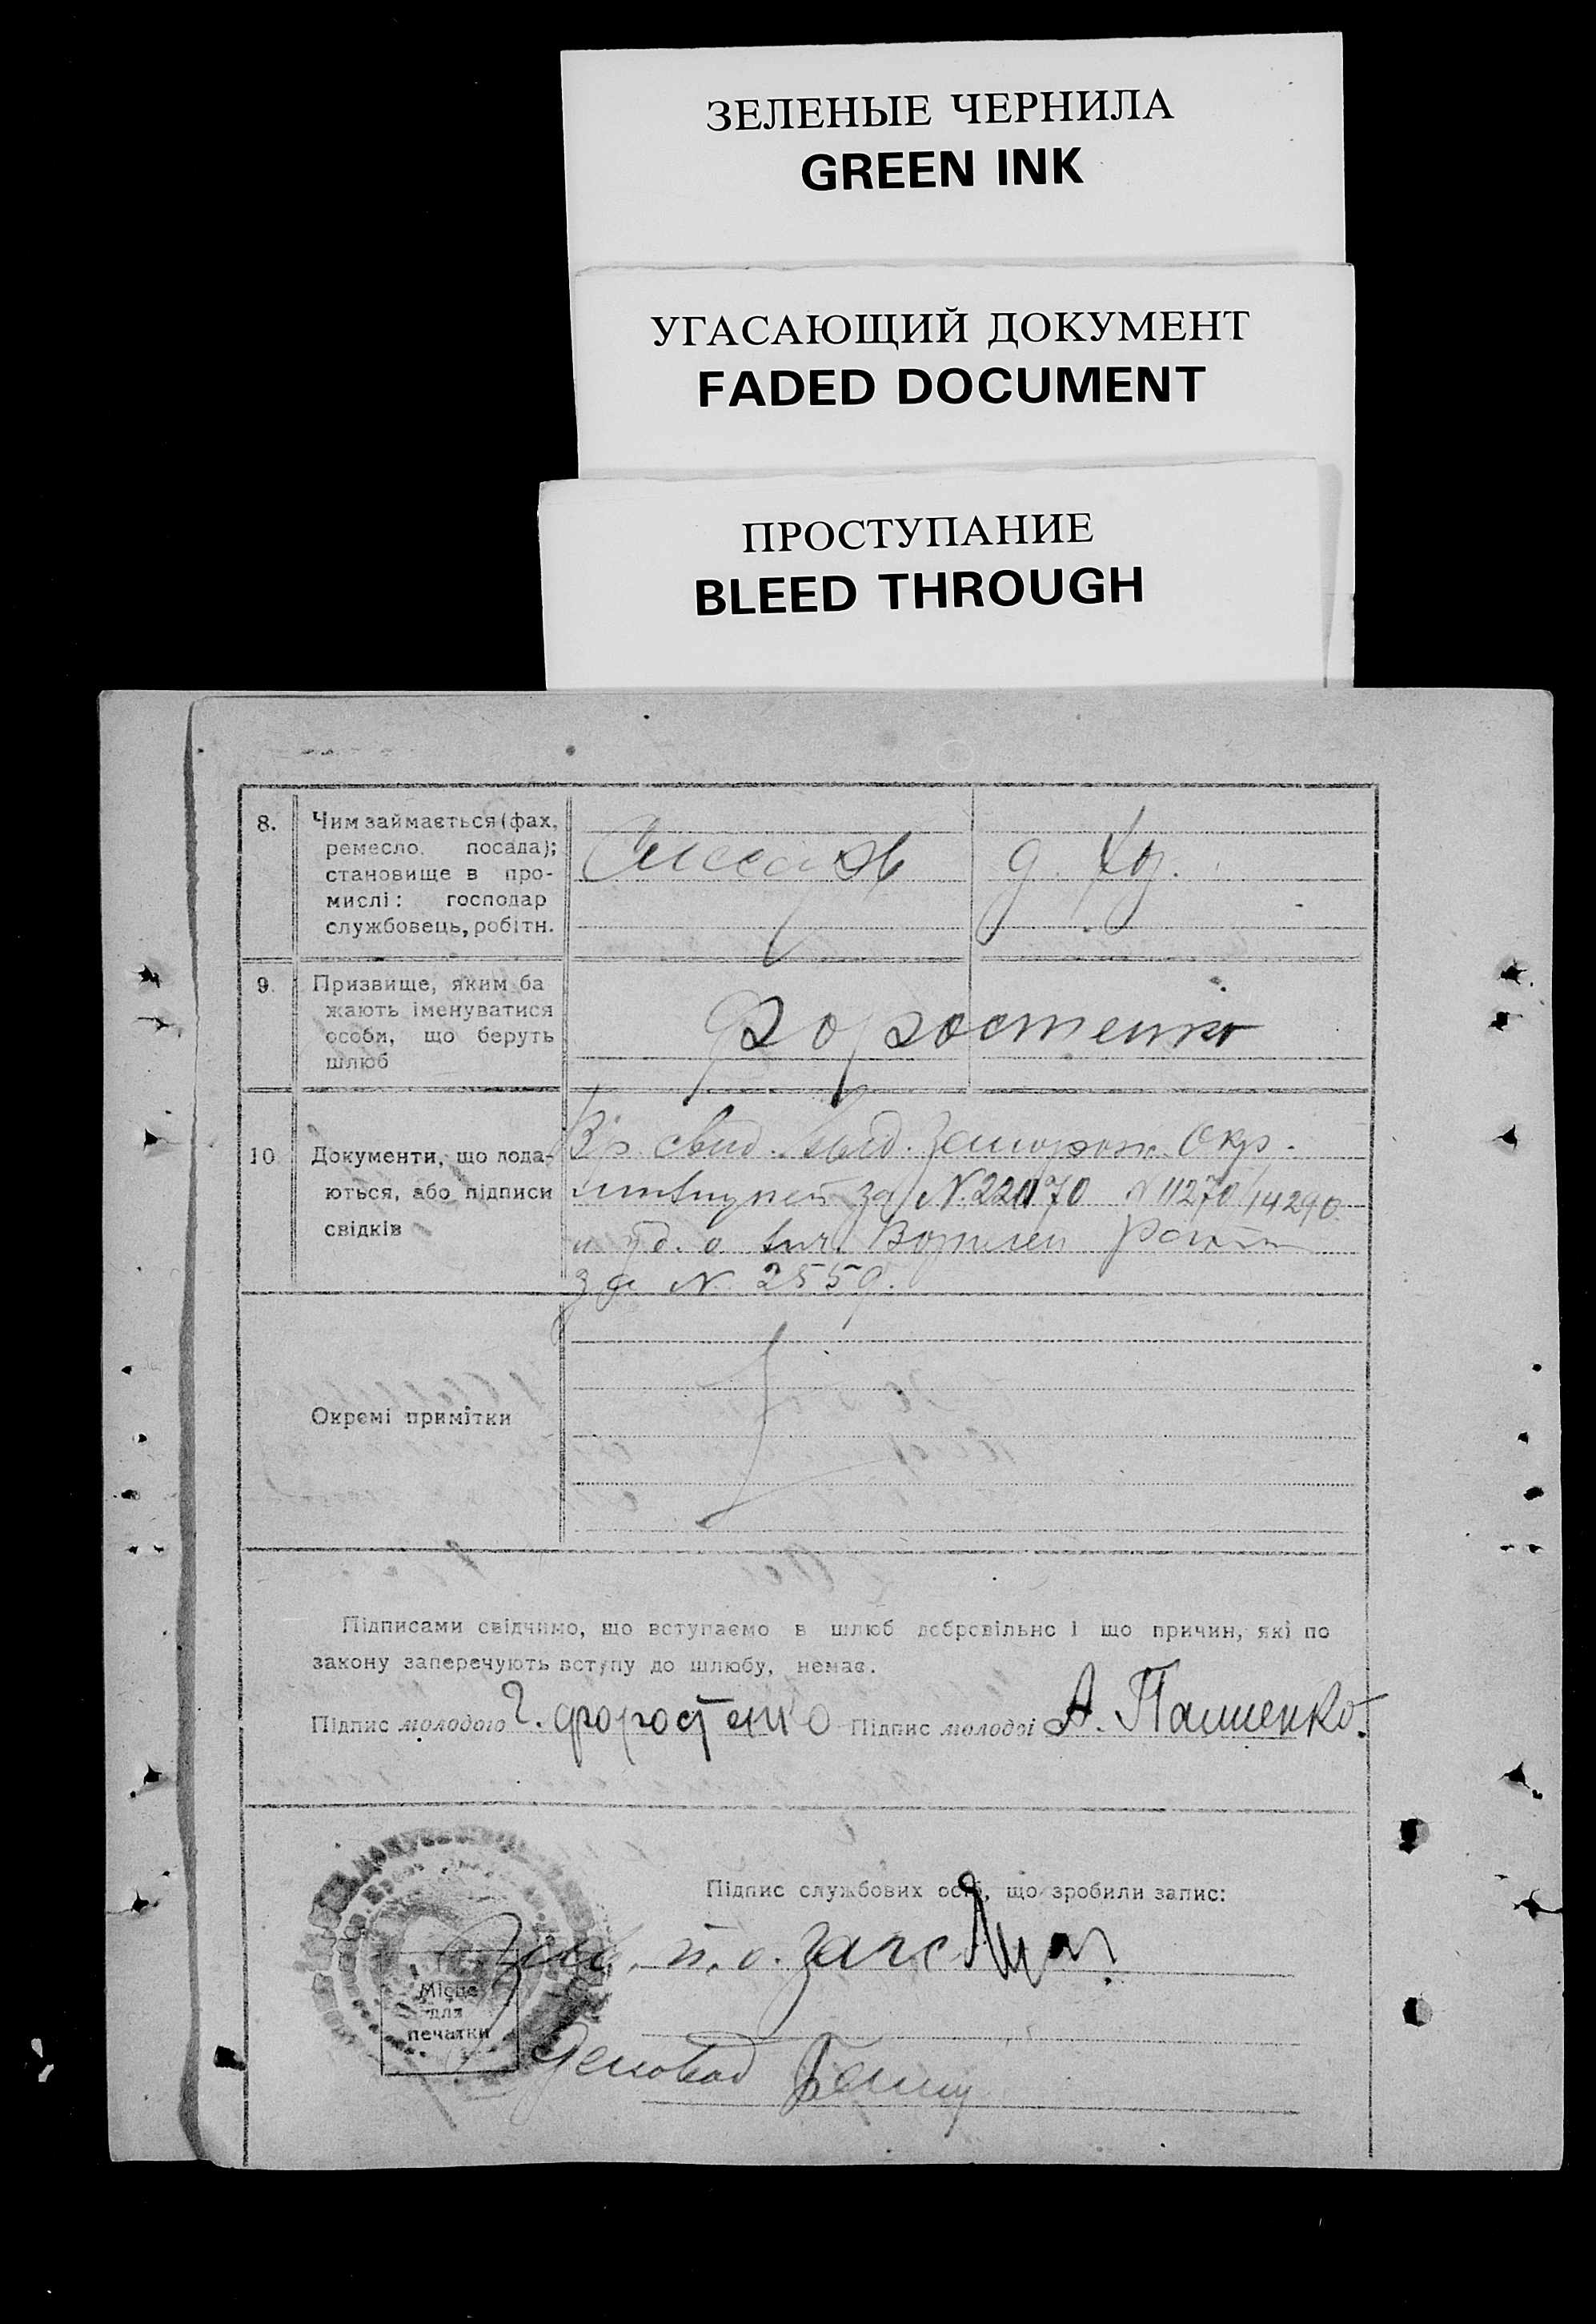 ЗЕЛЕНЫЕ ЧЕРНИЛА
GREEN INK
УГАСАЮЩИЙ ДОКУМЕНТ
FADED DOCUMENT
ПРОСТУПАНИЕ
BLEED THROUGH
8. Чим займається (фах,
ремесло. посада);
становище в про-
мислі: господар
службовець, робітн.
Слесарь
д. хоз.
9. Призвище, яким ба
жають іменуватися
особи, що беруть
шлюб
Форостенко
10 Документи, що пода-
ються, або підписи
свідків
свид. Запорож. Окр.
за N. 22070 N 11270/14290
уд. о
за N. 2559.
Окремі примітки
Підписами свідчимо, що вступаємо в шлюб добровільно і що причин, які по
закону заперечують вступу до шлюбу, немає.
Підпис молодого Г. Форостенко Підпис молодої А. Пашенко.
Підпис службових осіб, що зробили запис:
Зав. п. о. загс
Місце
для
печатки
Діловод